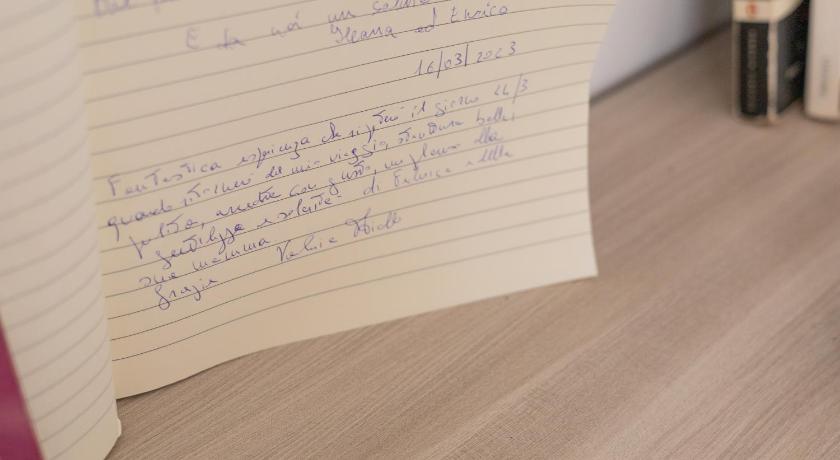 E da noi un
Ileana ed Enrico
16/03/2023
Fantastica esperienza che ripeterò il giorno 24/3
quando ritornerò dal mio viaggio, struttura bella,
pulita, arredata con gusto, un plauso alla
gentilezza e solarità di e della
sua mamma
Grazie